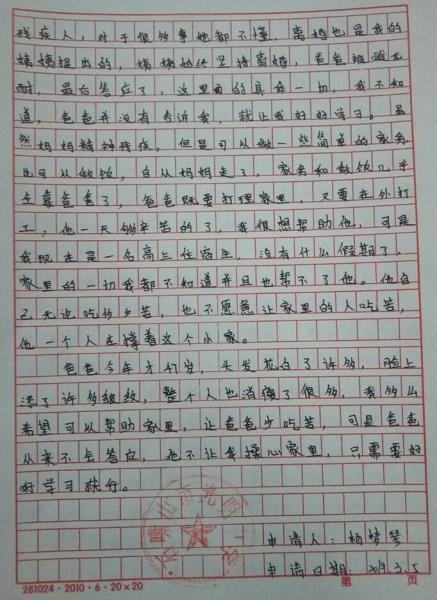 残疾人，对于很多事她都不懂，离婚也是我的
姨姨提出的，姨姨始终坚持离婚，爸爸被逼无
耐，最后答应了，这里面的具体一切，我不知
道，爸爸并没有告诉我，就让我好好学习。虽
然妈妈精神残疾，但是可以做一些简单的家务，
也可以做饭，自从妈妈走了，家务和做饭几乎
全靠爸爸了，爸爸既要打理家里，又要在外打
工，他一天够辛苦的了，我很想帮助他，可是
我现在是一名高三住宿生，没有什么假期了，
家里的一切我都不知道并且也帮不了他。他自
己无论吃多少苦，也不愿意让家里的人吃苦，
他一个人支撑着这个小家。
爸爸今年才47岁，头发花白了许多，脸上
添了许多皱纹，整个人也消瘦了很多，我多么
希望可以帮助家里，让爸爸少吃苦，可是爸爸
从来不会答应，他不让我操心家里，只需要好
好学习就行。
申请人：杨梦琴
申请日期：2019.3.5
281024·2010·6·20×20
第 页